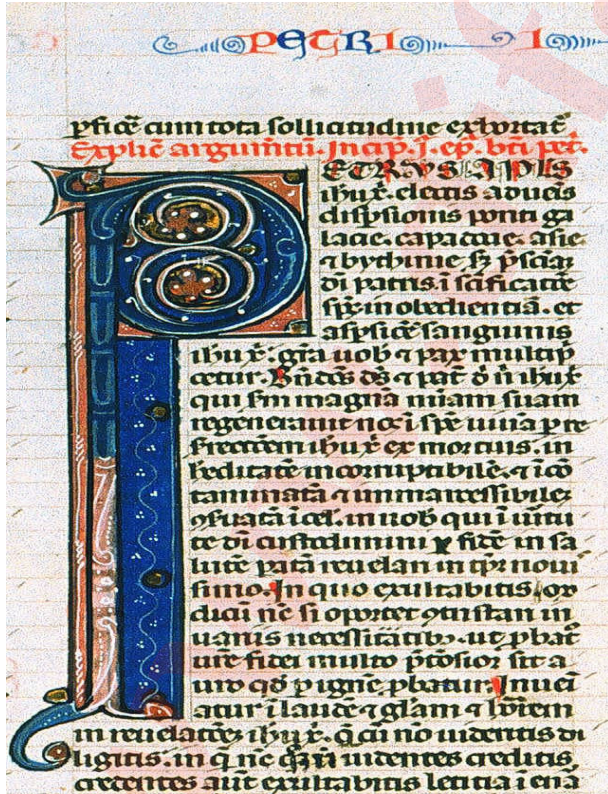 PETRI I
ꝑficē cum tota sollicitudine exhortat̄
Explic̄ argumētū. Incip̄. I. ep̄. bt̄i pet̄.
PETRVS APLS
ihu xp̄. electis aduēis
disꝑsionis ponti ga
lacie. capadocie. asie
⁊ bythinie. sc̄ p̄sciaꝫ
di patris. ī sc̄ificatōe
sp̄s. in obedientiā. et
asp̄sioē sanguinis
ihu xp̄. gr̄a uob̄ ⁊ pax multip
cetur. Bn̄dc̄s ds̄ ⁊ pat̄ d n̄i ihu xp̄
qui sm̄ magnā miam̄ suam
regenerauit nos ī spē uiuā ꝑ re
surrectōem ihu xp̄ ex mortuis. in
heditatē incorruptibilē. ⁊ īcō
taminatā ⁊ immarcessibilē
ꝯseruatā ī cel̄. in uob̄ qui ī uirtu
te di custodimini ꝑ fidē in sa
lutē patā reuelari in tp̄r noui
simo. In quo exultabitis. mo
dicū nc̄ si oportet ꝯtristari in
uariis necessitatibꝫ. ut ꝓbat̄
ur̄e fidei multo p̄ciosior sit a
uro qd̄ ꝑ ignē ꝓbatur. Inuei
atur ī laudē ⁊ gl̄am ⁊ honorem
in reuelatōe ihu xp̄. q̄ cū nō uidentis di
ligitis. in q nc̄ q̄ꝫ n̄ uidentes creditis.
credentes aut̄ exultabitis letitia ī ena